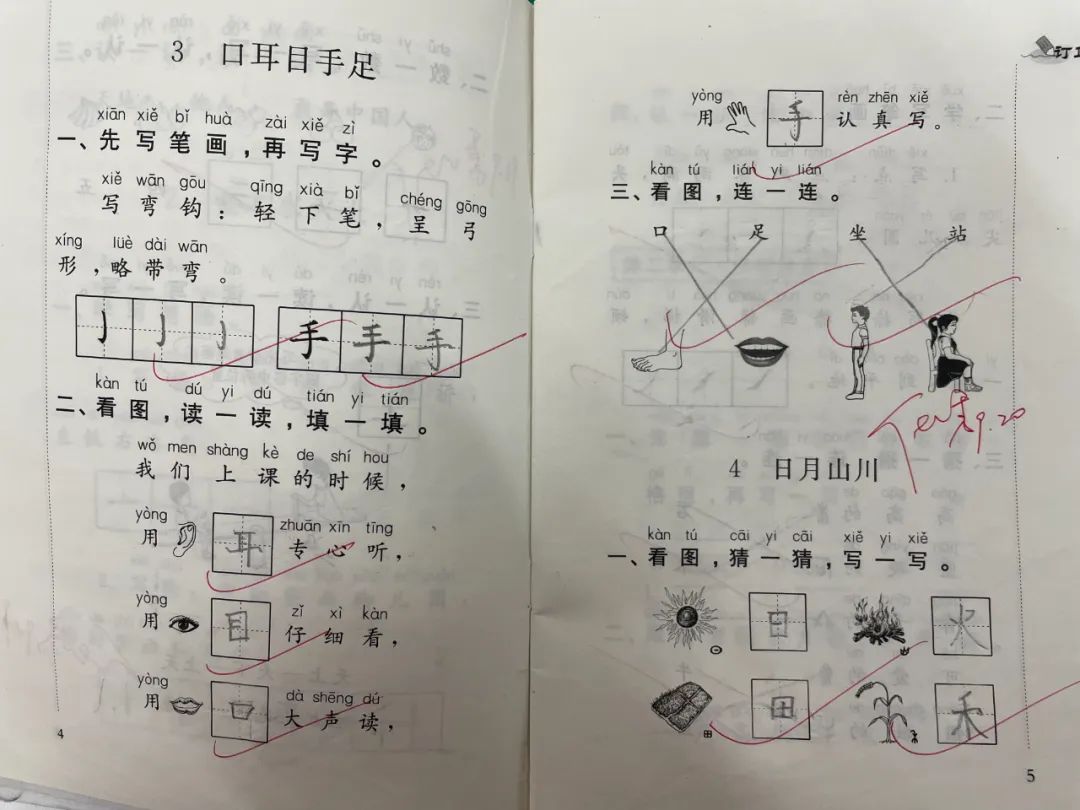 3 口耳目手足
xiān xiě bǐ huà zài xiě zì
一、先写笔画，再写字。
xiě wān gōu qīng xià bǐ chéng gōng
写弯钩：轻下笔，呈弓
xíng lüè dài wān
形，略带弯。
手 手 手
kàn tú dú yi dú tián yi tián
二、看图，读一读，填一填。
wǒ men shàng kè de shí hou
我们上课的时候，
yòng zhuān xīn tīng
用 耳 专心听，
yòng zǐ xì kàn
用 目 仔细看，
yòng dà shēng dú
用 口 大声读，
4
yòng rèn zhēn xiě
用 手 认真写。
kàn tú lián yi lián
三、看图，连一连。
口 足 坐 站
9.20
4 日月山川
kàn tú cāi yi cāi xiě yi xiě
一、看图，猜一猜，写一写。
日 火
田 禾
5